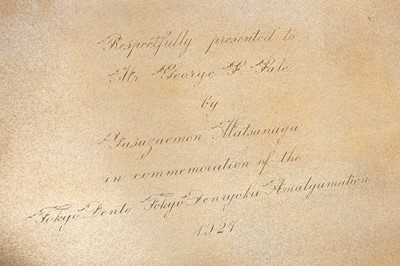 Respectfully presented to
Mr George P Pale
by
Yasuzaemon Matsunaga
in commemoration of the
Tokyo Dento Tokyo Denryoku Amalgamation
1927